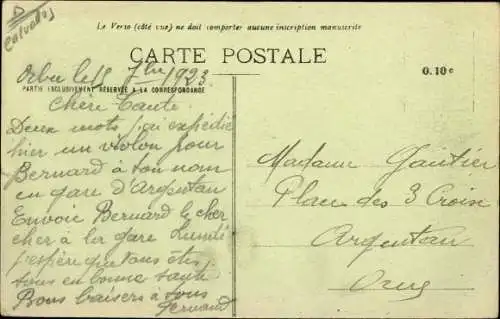 D
Calvados
Le Verso (côté vue) ne doit comporter aucune inscription manuscrite
CARTE POSTALE
0.10c
7bre 1923
PARTIE EXCLUSIVEMENT RÉSERVÉE A LA CORRESPONDANCE
Chère Tante
Deux mots j'ai expédié
hier un violon pour
Bernard à ton nom
en gare d'Argentan
Envoie Bernard le cher
cher à la gare Lundi
j'espère que tous êtes
tous en bonne santé
Bons baisers à tous
Fernand
Madame Gautier
Place des 3 Croise
Argentan
Orne